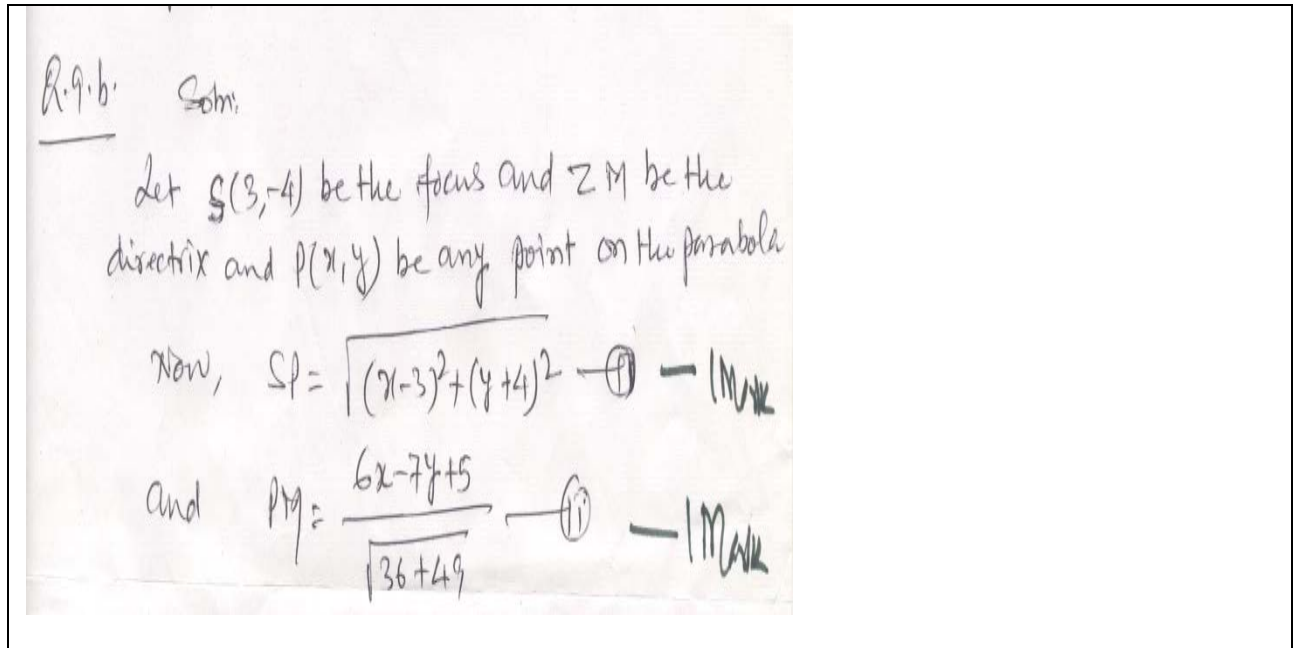 Q.9.b. Soln:
Let S(3,-4) be the focus and ZM be the
directrix and P(x,y) be any point on the parabola
Now, SP = √((x-3)²+(y+4)²) — (i) — 1 Mark
and PM = (6x-7y+5)/√(36+49) — (ii) — 1 Mark